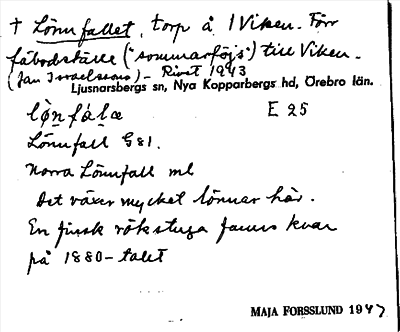 † Lönnfallet, torp å 1 Viken. Förr
fäbodställe ("sommarföjs") till Viken.
(Jan Israelssons) - Rivet 1943
Ljusnarsbergs sn, Nya Kopparbergs hd, Örebro län.
lònfàlæ E 25
Lönnfall G81.
Norra Lönnfall ml
Det växer mycket lönnar här.
En finsk rökstuga fanns kvar
på 1880-talet
MAJA FORSSLUND 1947